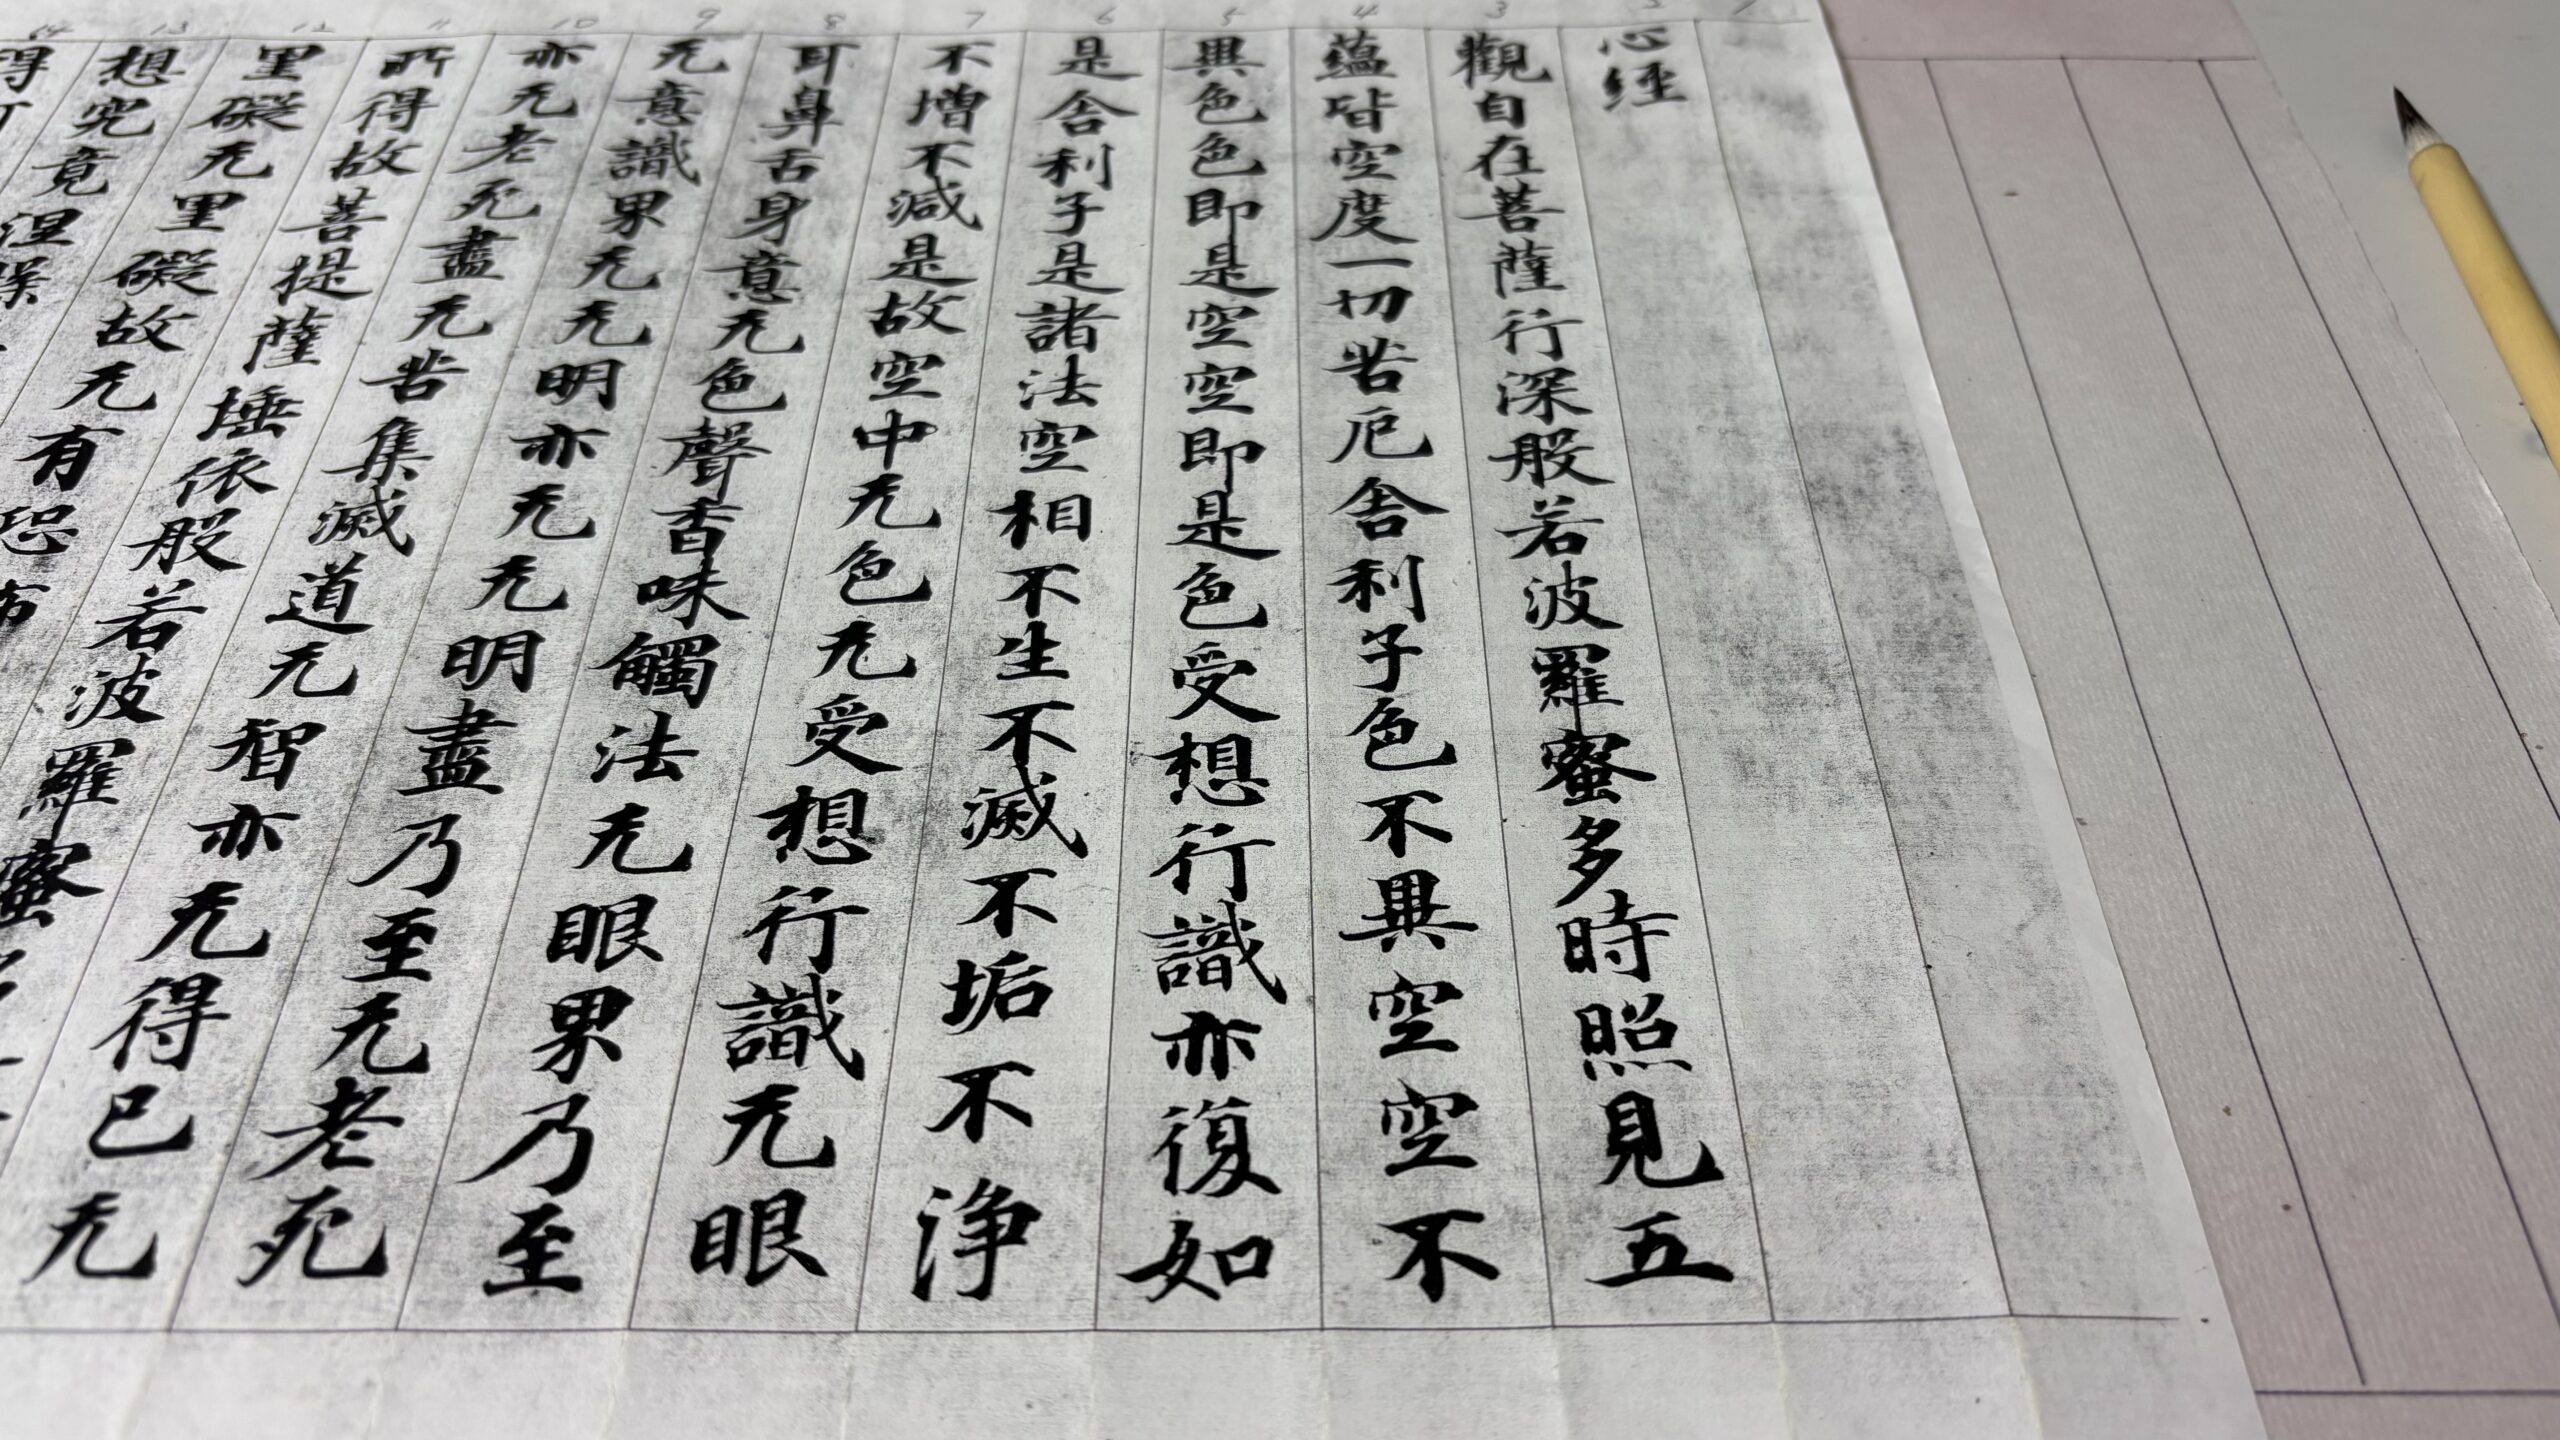 14 13 12 11 10 9 8 7 6 5 4 3 2 1
心経
觀自在菩薩行深般若波羅蜜多時照見五
蘊皆空度一切苦厄舎利子色不異空空不
異色色即是空空即是色受想行識亦復如
是舎利子是諸法空相不生不滅不垢不浄
不増不減是故空中无色无受想行識无眼
耳鼻舌身意无色聲香味觸法无眼界乃至
无意識界无无明亦无无明盡乃至无老死
亦无老死盡无苦集滅道无智亦无得已无
所得故菩提薩埵依般若波羅蜜
里礙无里礙故无有恐
想究竟涅
得